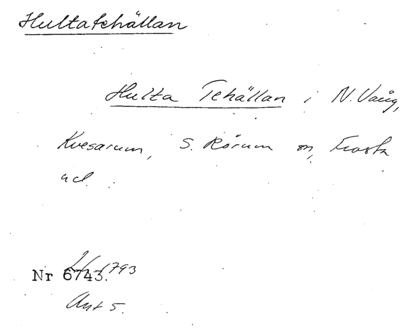 Hultatehällan
Hulta Tehällan i N. Vång,
Kvesarum, S. Rörum sn, Frosta
hd.
Nr 6743. 1793
Akt 5.